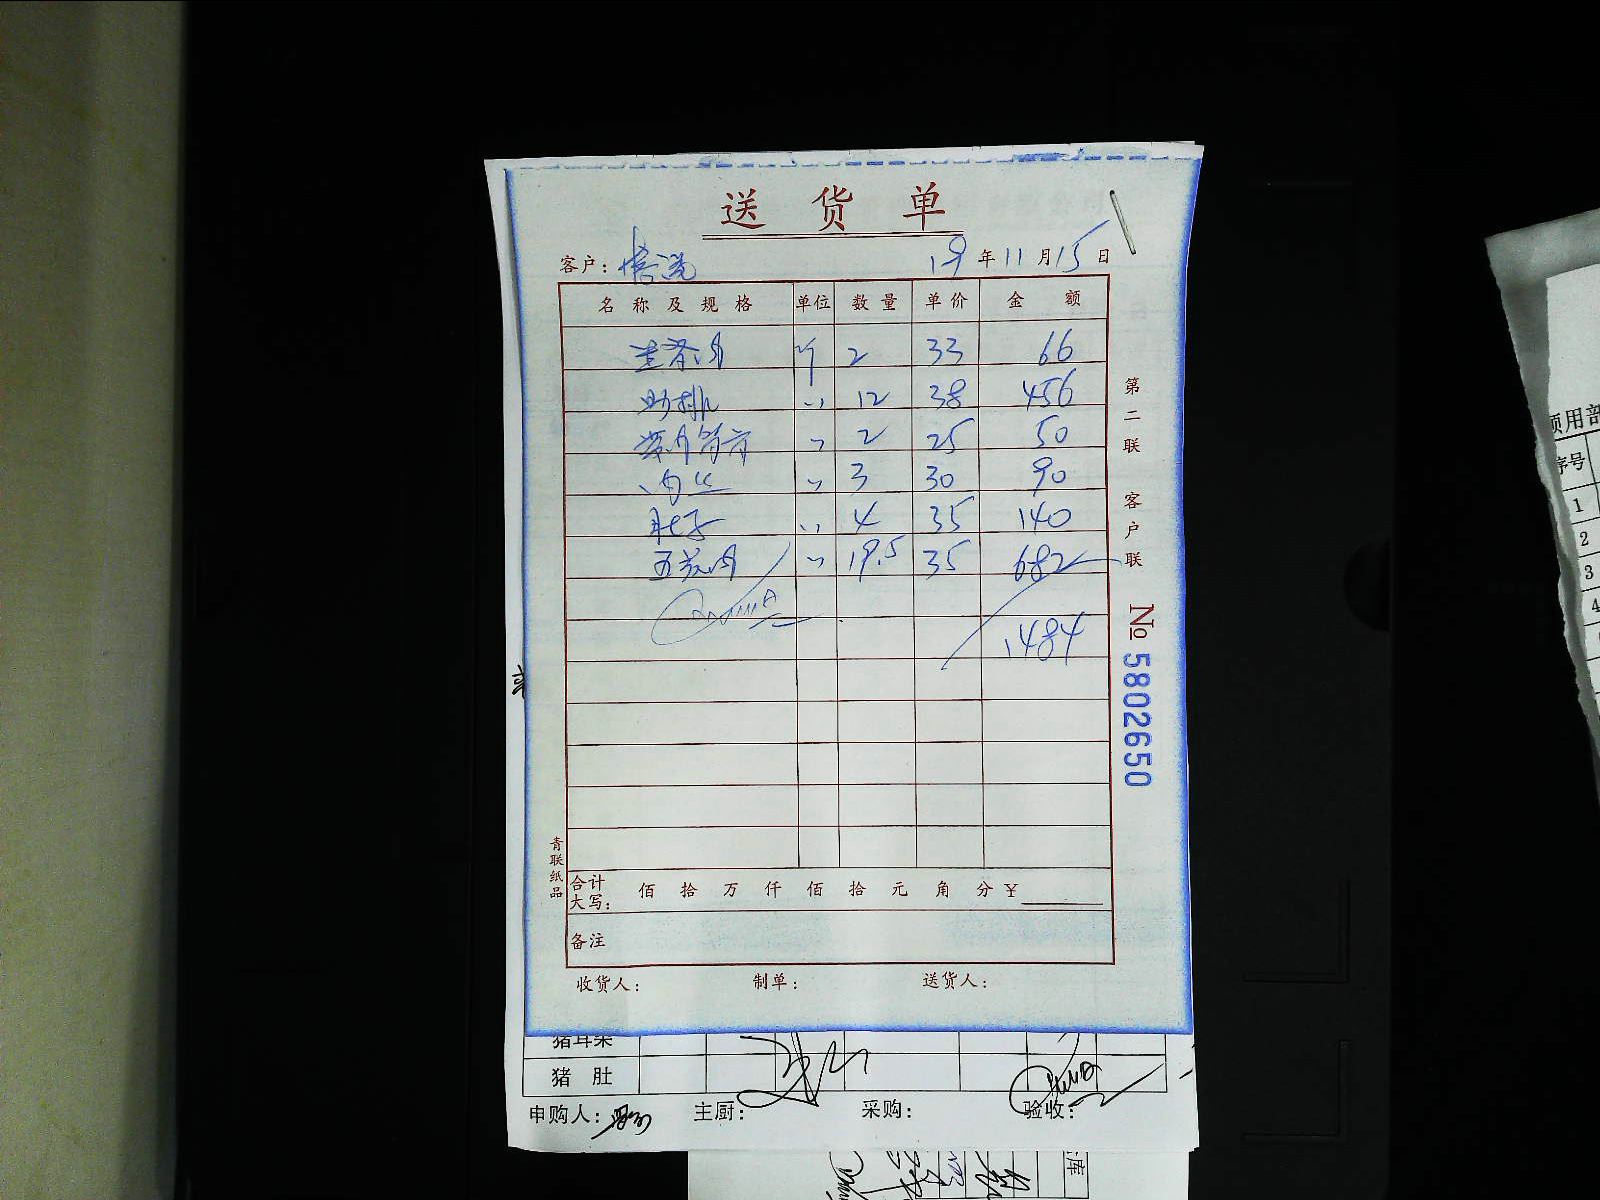 送货单
客户：
19年11月15日
名称及规格 单位 数量 单价 金额
斤 2 33 66
肋排 〃 12 38 456
〃 2 25 50
肉丝 〃 3 30 90
肚子 〃 4 35 140
五花肉 〃 19.5 35 682
1484
合计大写： 佰 拾 万 仟 佰 拾 元 角 分 ¥
备注
收货人： 制单： 送货人：
第二联 客户联
№5802650
青联纸品
猪耳朵
猪肚
申购人： 主厨： 采购： 验收：
库
领用部
序号
1
2
3
4